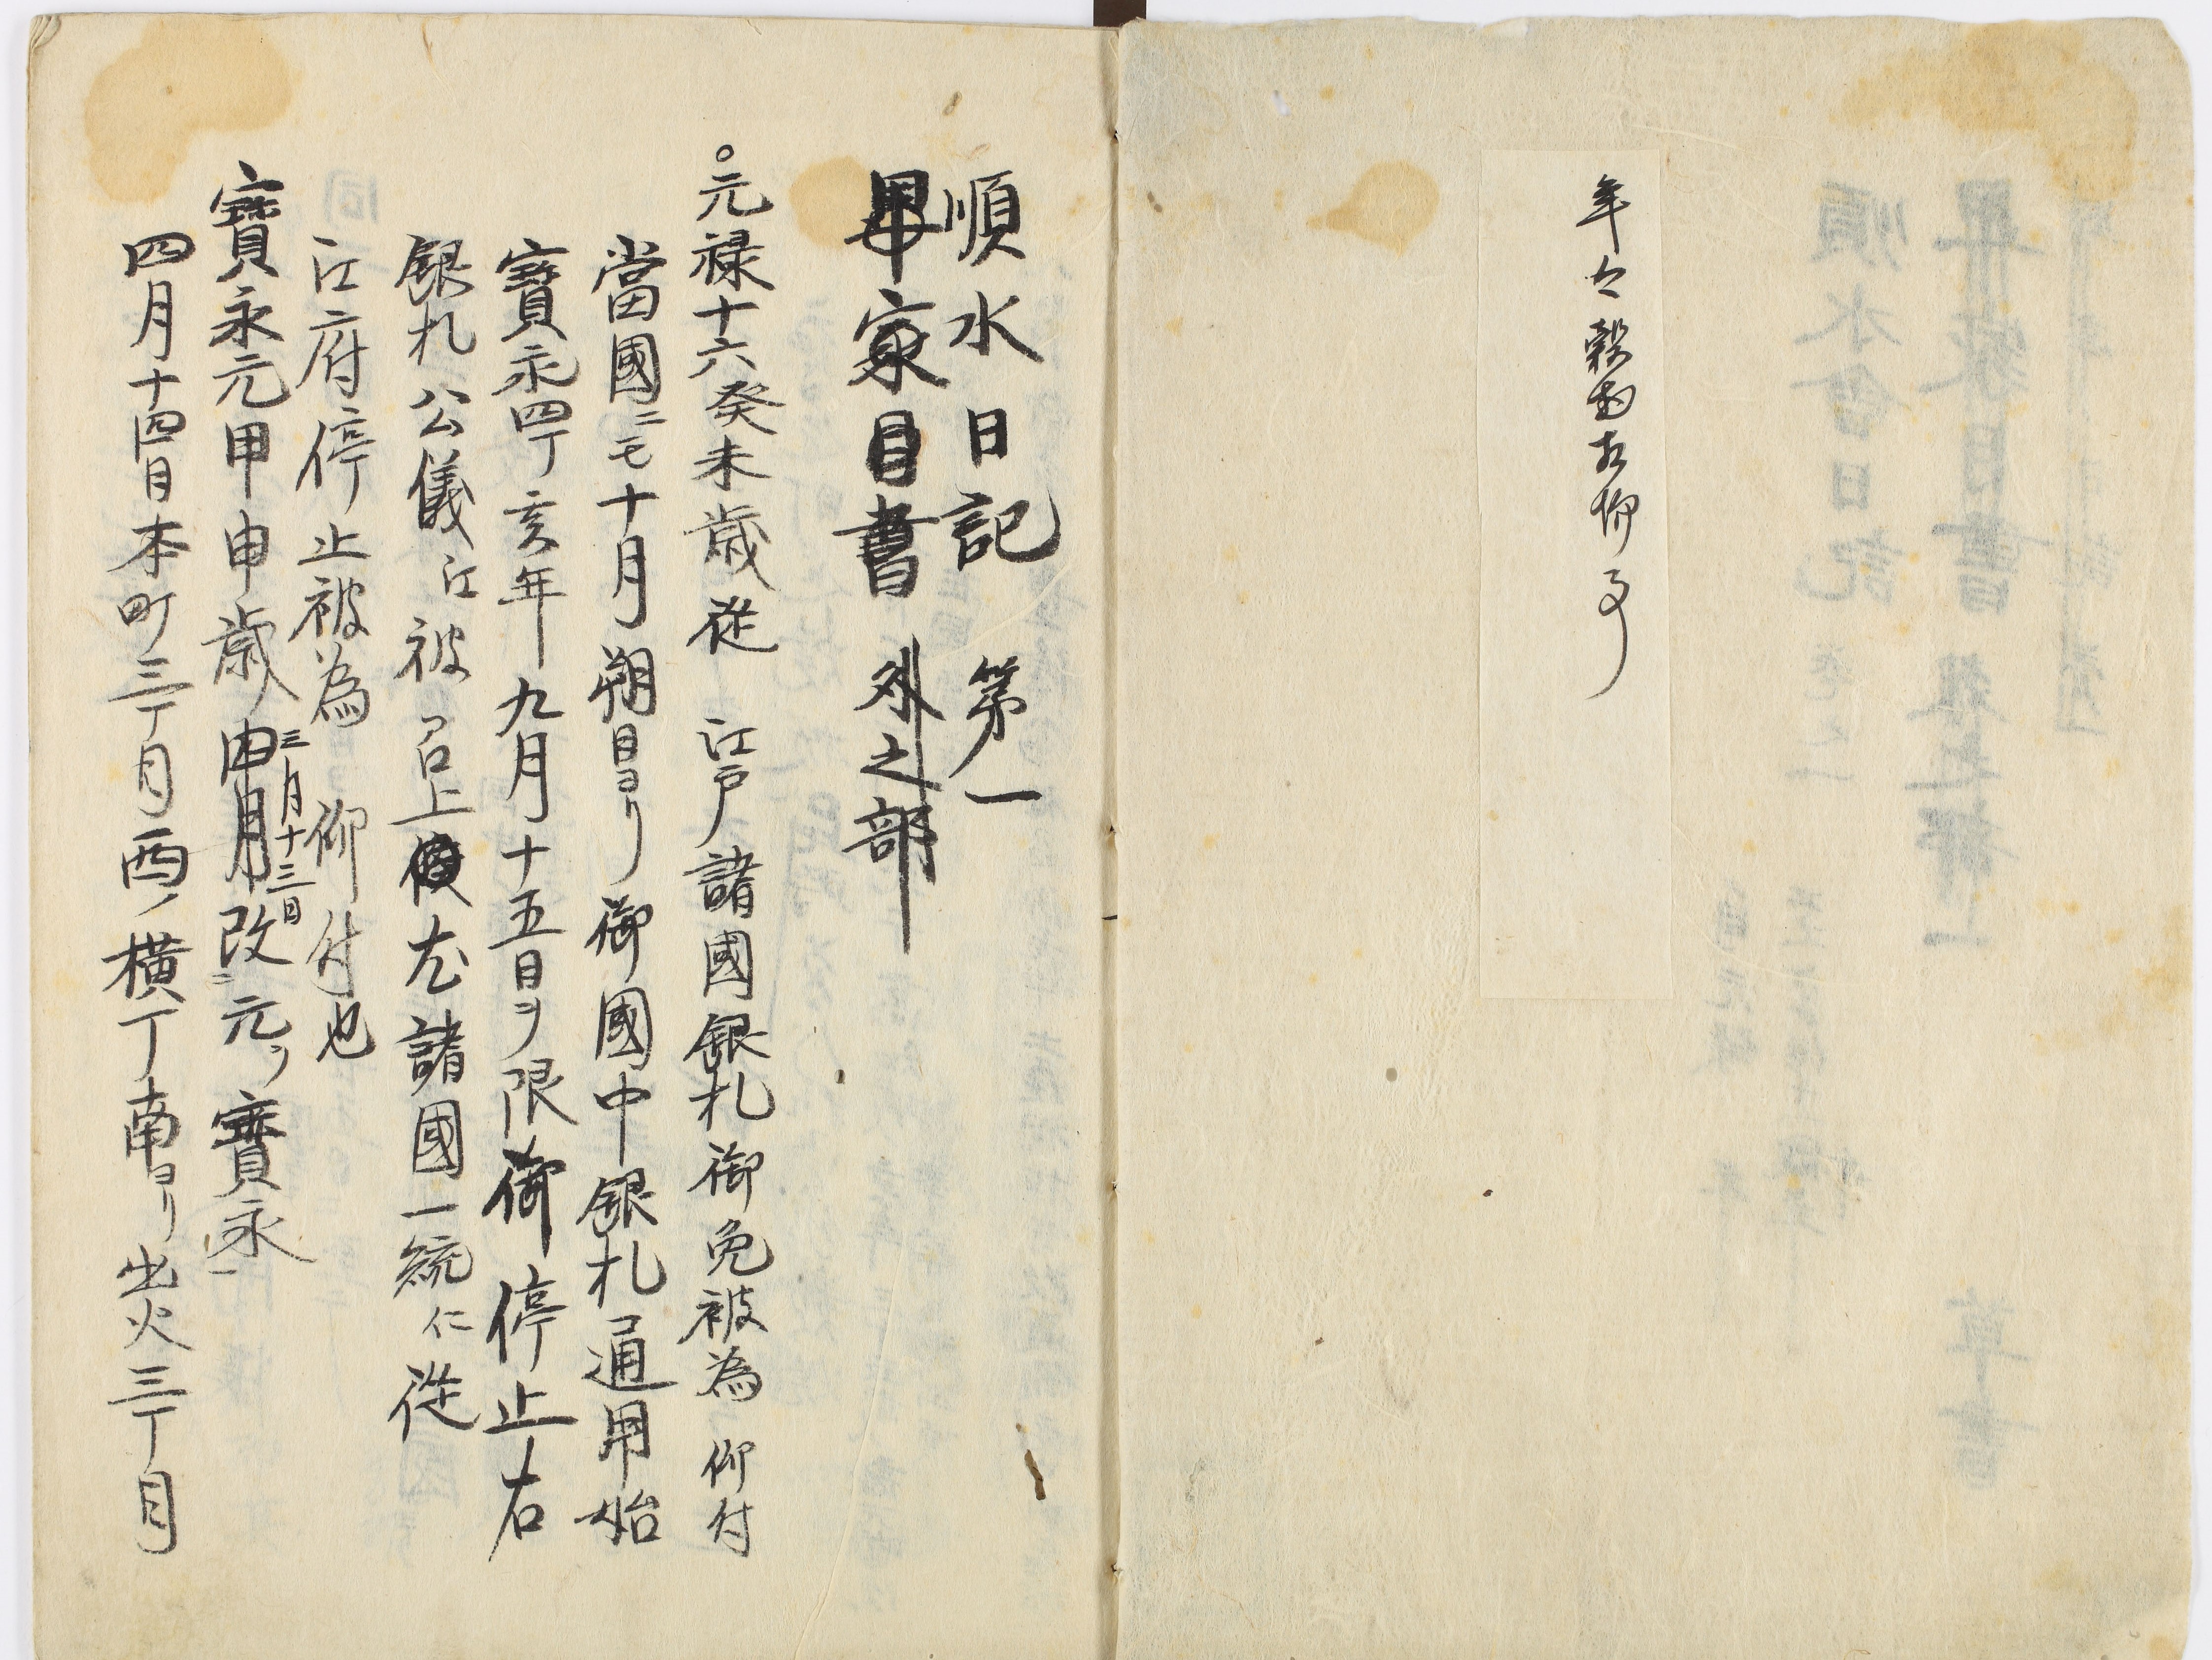 年々穀物相場
順水日記　第一
畢家目書　外之部
元禄十六癸未歳従　江戸諸國銀札御免被為　仰付
當國ニモ十月朔日ヨリ御國中銀札通用始
寳永四丁亥年九月十五日ヲ限御停止右
銀札公儀江被　召上候尤諸國一統仁従
江府停止被為　仰付也
寳永元甲申歳
三月十三日
改元ノ寳永
四月十四日本町三丁目西ノ横丁南ヨリ出火三丁目